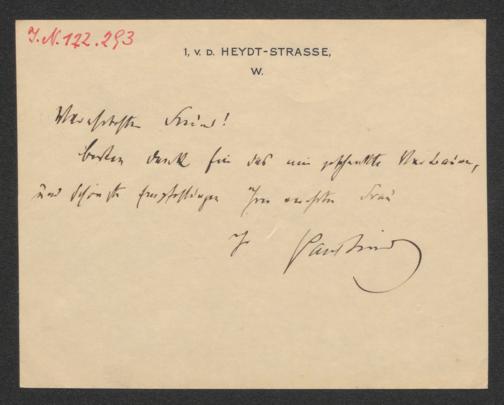 J.N. 122.293
1, V. D. HEYDT-STRASSE,
W.
Verehrtester Freund!
besten Dank für das mir geschenkte Vertrauen,
und schönste Empfehlungen Ihrer verehrten Frau
Ihr